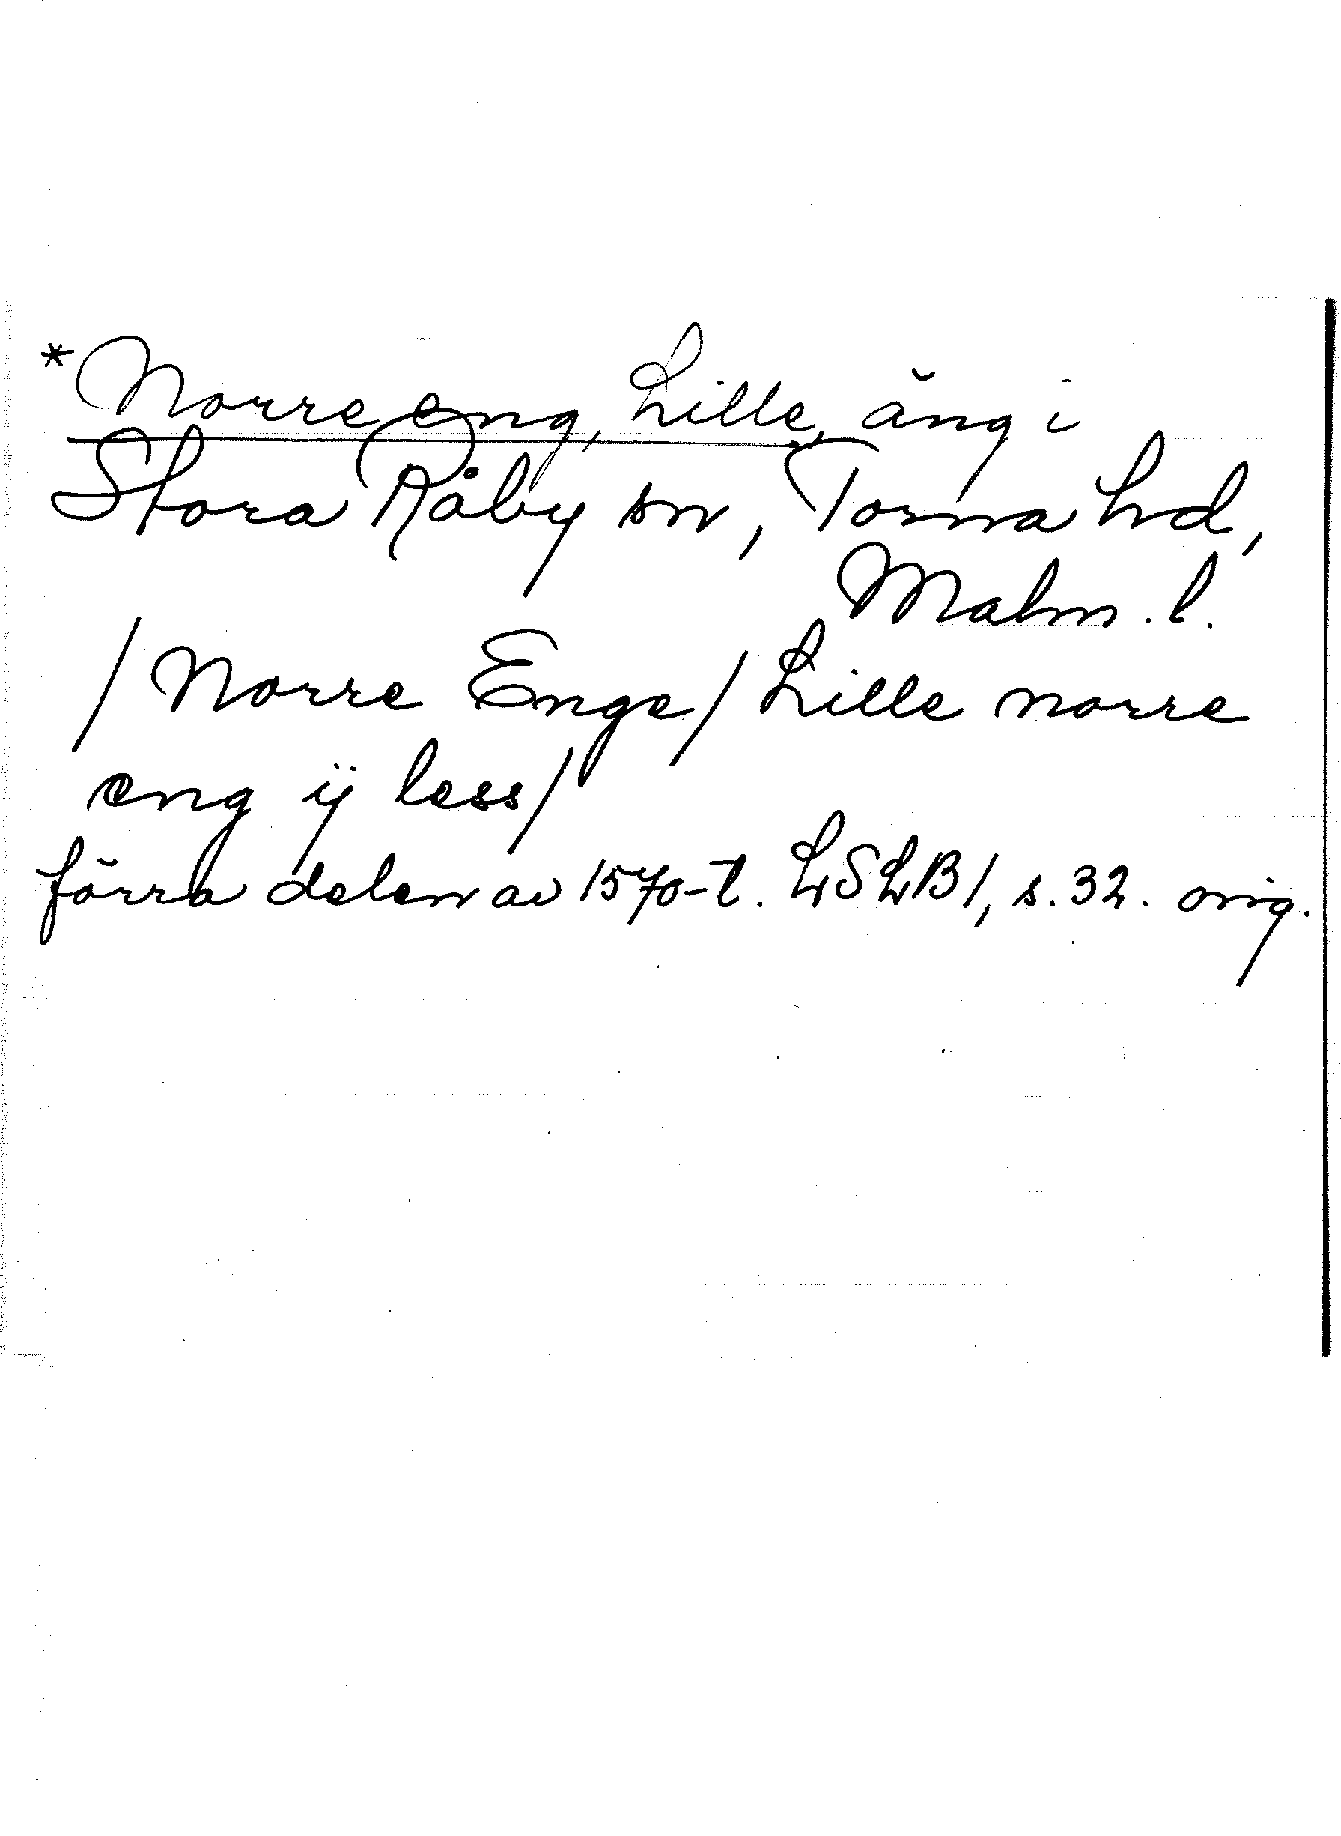 *Norre eng, Lille, äng i
Stora Råby sn, Torna hd,
Malm. l.
/Norre Enge/ Lille norre
eng ij less/
förra delen av 1570-t. LSLB 1, s. 32. orig.